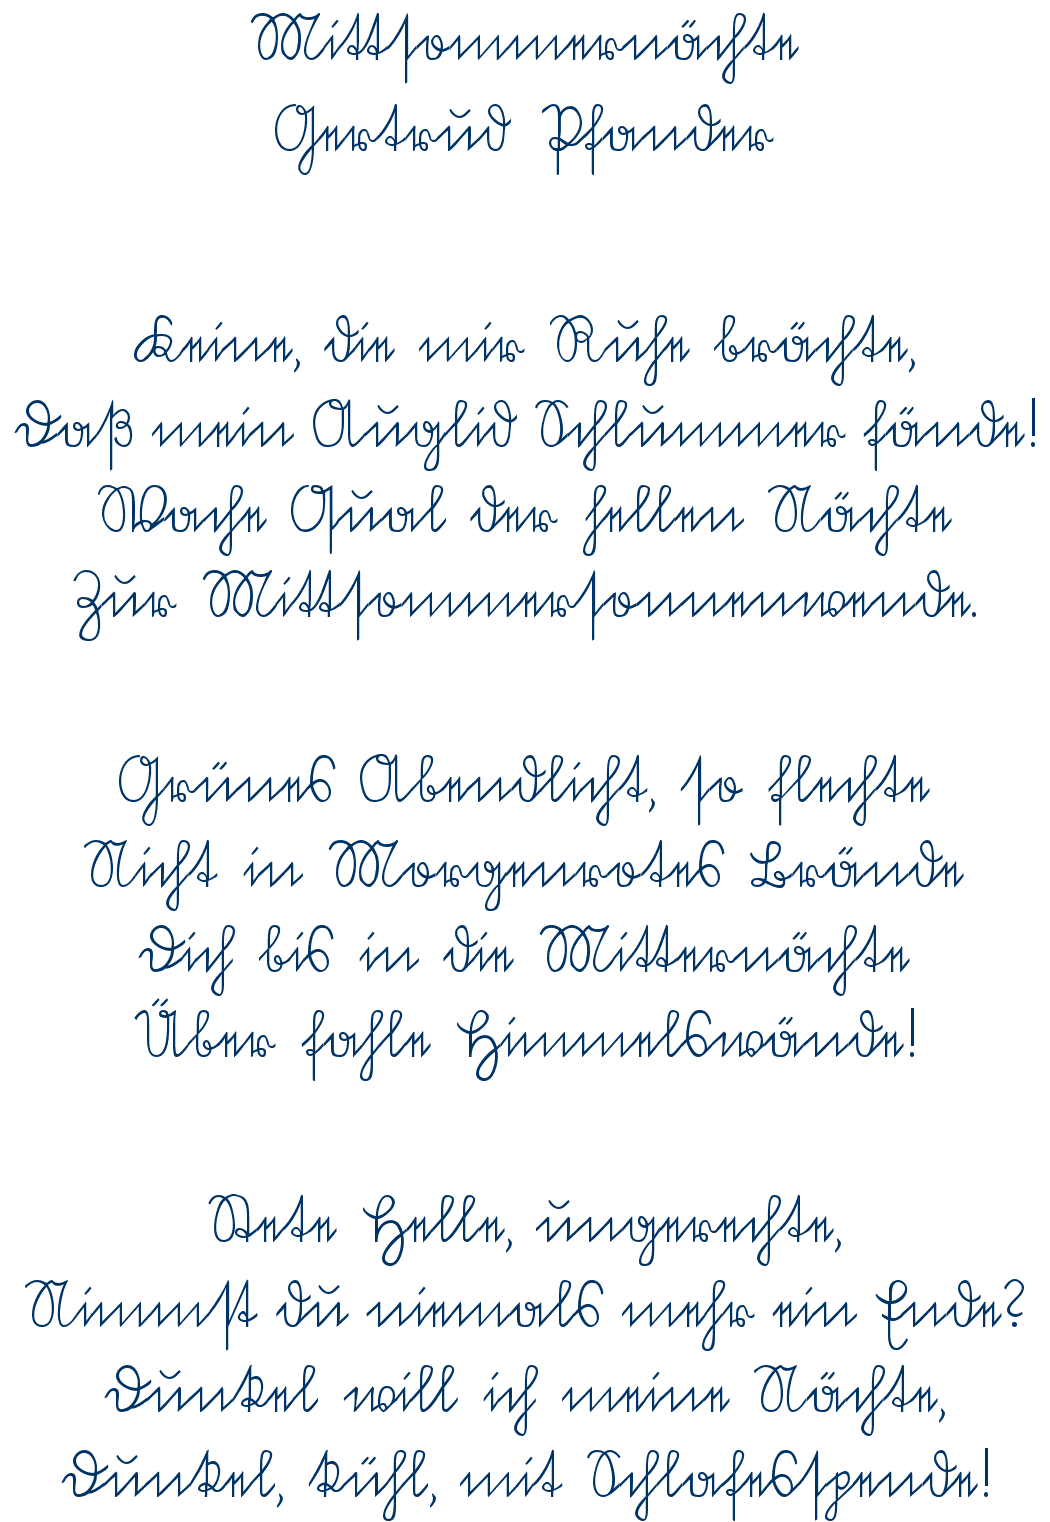 Mittsommernächte
Gertrud Pfander
Keine, die mir Ruhe brächte,
Daß mein Auglid Schlummer fände!
Wache Qual der hellen Nächte
Zur Mittsommersonnenwende.
Grünes Abendlicht, so flechte
Nicht in Morgenrotes Brände
Dich bis in die Mitternächte
Über fahle Himmelswände!
Stete Helle, ungerechte,
Nimmst du niemals mehr ein Ende?
Dunkel will ich meine Nächte,
Dunkel, kühl, mit Schlafesspende!